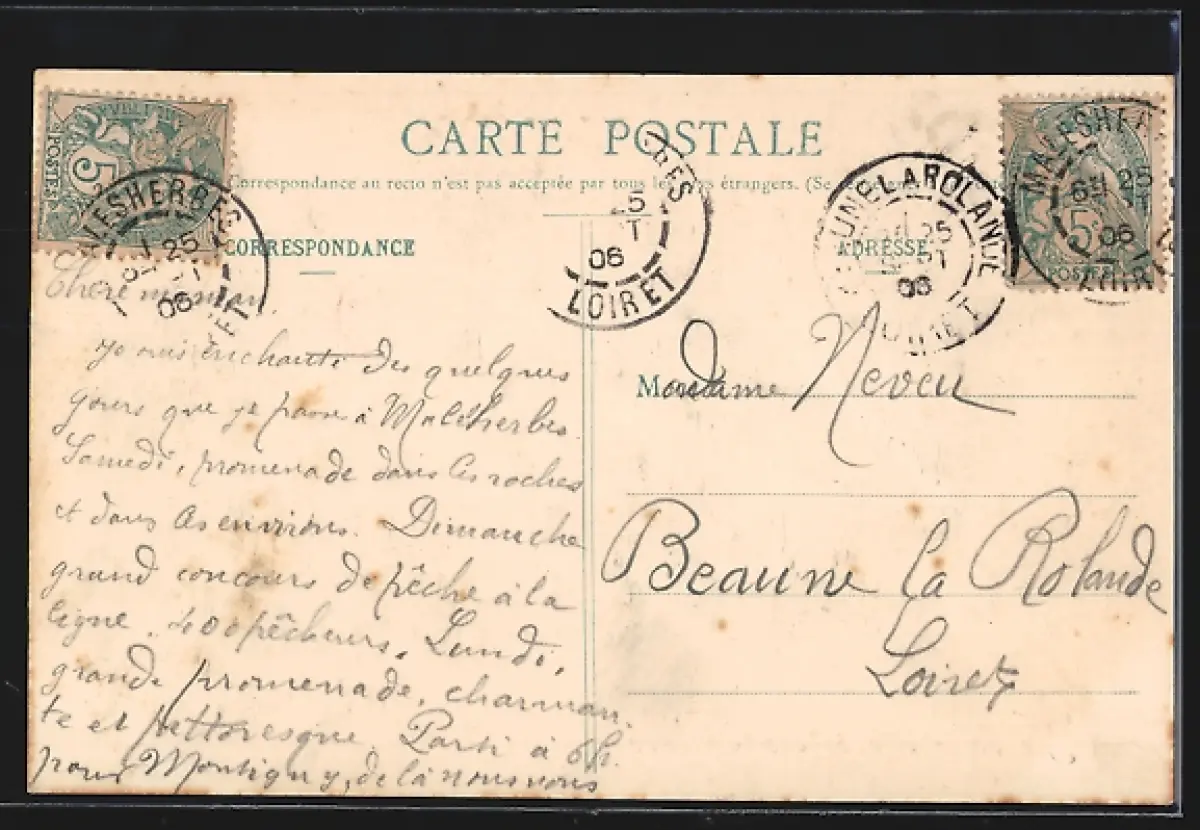 CARTE POSTALE
Correspondance au recto n'est pas acceptée par tous les pays étrangers. (Se
CORRESPONDANCE
ADRESSE
POSTES
5
MALESHERBES
25
06
RES
25
06
LOIRET
BEAUNE LA ROLANDE
25
SEPT
06
LOIRET
MALESHERBES
6E 25
06
LOIRET
5
POSTES
Chère maman
Je suis enchanté des quelques
jours que je passe à Malesherbes.
Samedi, promenade dans les roches
et dans les environs. Dimanche
grand concours de pêche à la
ligne. 400 pêcheurs. Lundi,
grande promenade, charman
te et pittoresque Parti à 6h.
pour Montigny, de là nous
Madame Neveu
Beaune la Rolande
Loiret